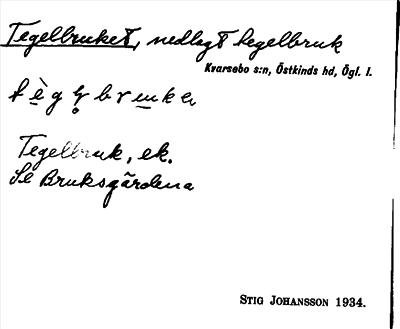 Tegelbruket, nedlagt tegelbruk
Kvarsebo s:n, Östkinds hd, Ögl. l.
Tegelbruk, ek.
Se Bruksgårdena
STIG JOHANSSON 1934.